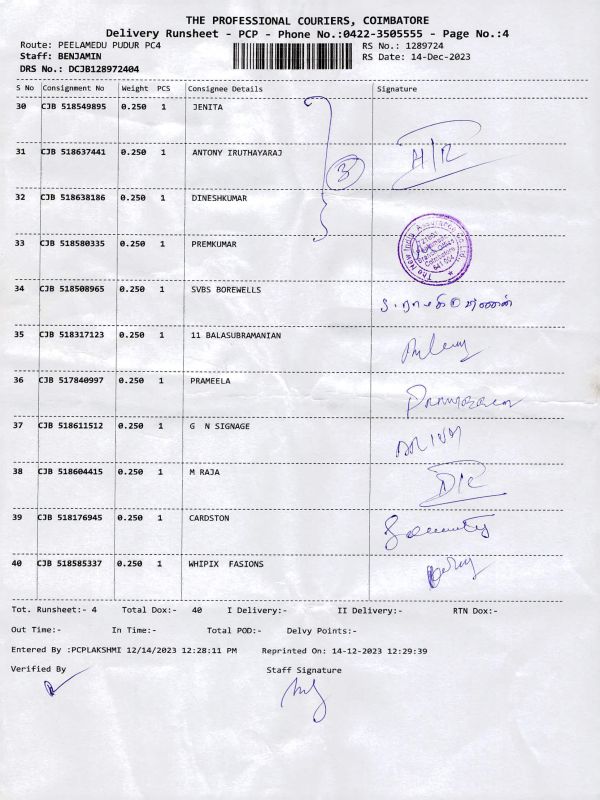 THE PROFESSIONAL COURIERS, COIMBATORE
Delivery Runsheet - PCP - Phone No.:0422-3505555 - Page No.:4
Route: PEELAMEDU PUDUR PC4 RS No.: 1289724
Staff: BENJAMIN RS Date: 14-Dec-2023
DRS No.: DCJB128972404
S No Consignment No Weight PCS Consignee Details Signature
30 CJB 518549895 0.250 1 JENITA
31 CJB 518637441 0.250 1 ANTONY IRUTHAYARAJ
3
32 CJB 518638186 0.250 1 DINESHKUMAR
33 CJB 518580335 0.250 1 PREMKUMAR
The New India Assurance Co. Ltd.
Coimbatore
641 004
34 CJB 518508965 0.250 1 SVBS BOREWELLS
35 CJB 518317123 0.250 1 11 BALASUBRAMANIAN
36 CJB 517840997 0.250 1 PRAMEELA
37 CJB 518611512 0.250 1 G N SIGNAGE
38 CJB 518604415 0.250 1 M RAJA
39 CJB 518176945 0.250 1 CARDSTON
Security
40 CJB 518585337 0.250 1 WHIPIX FASIONS
Tot. Runsheet:- 4 Total Dox:- 40 I Delivery:- II Delivery:- RTN Dox:-
Out Time:- In Time:- Total POD:- Delvy Points:-
Entered By :PCPLAKSHMI 12/14/2023 12:28:11 PM Reprinted On: 14-12-2023 12:29:39
Verified By Staff Signature